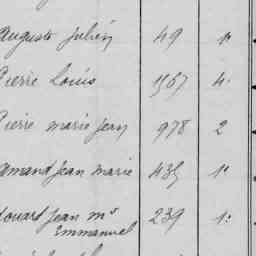 Auguste Julien 49 1e
Pierre Louis 1567 4e
Pierre marie Jean 978 2
Amand Jean Marie 435 1e
douard Jean Ms 239 1e
Emmanuel